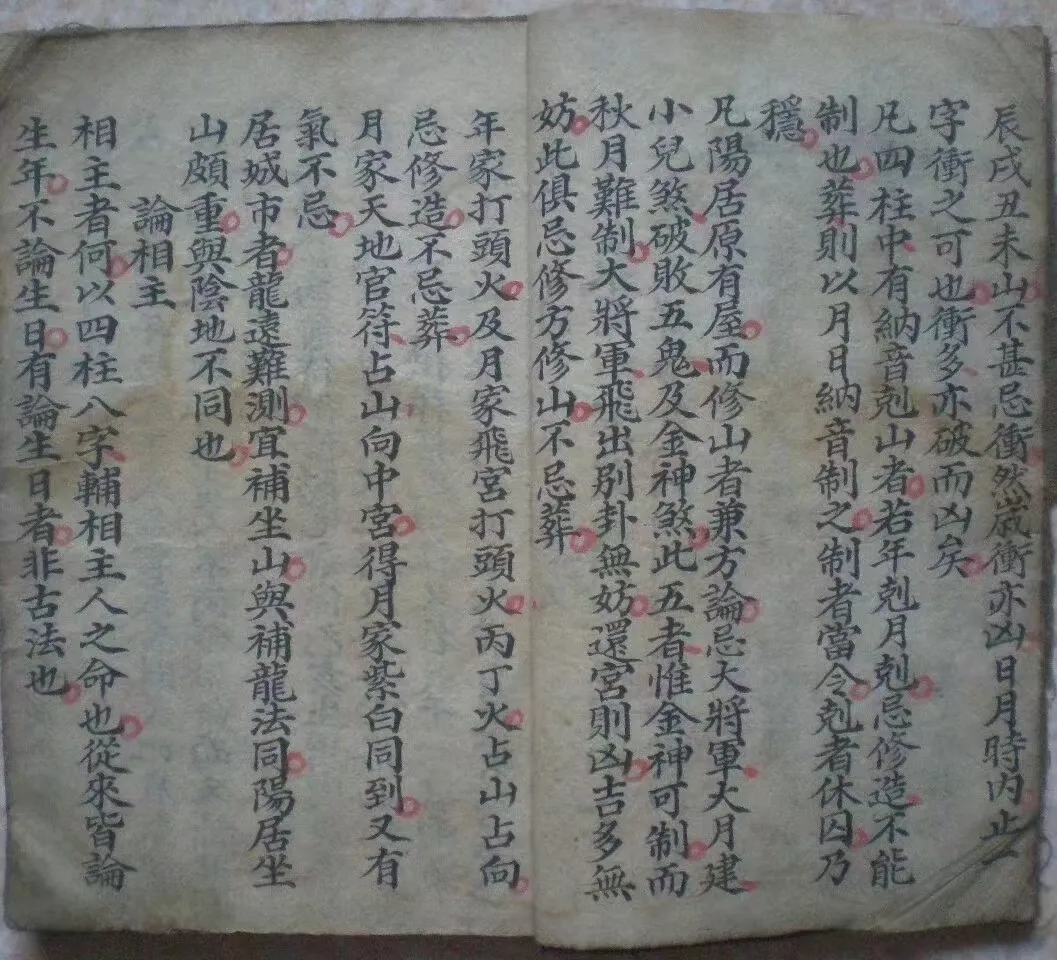 辰戌丑未山不甚忌衝然歲衝亦凶日月時內止一
字衝之可也衝多亦破而凶矣
凡四柱中有納音剋山者若年剋月剋忌修造不能
制也葬則以月日納音制之制者當令剋者休囚乃
穩
凡陽居原有屋而修山者兼方論忌大將軍大月建
小兒煞破敗五鬼及金神煞此五者惟金神可制而
秋月難制大將軍飛出別卦無妨還宮則凶吉多無
妨此俱忌修方修山不忌葬
年家打頭火及月家飛宮打頭火丙丁火占山占向
忌修造不忌葬
月家天地官符占山向中宮得月家紫白同到又有
氣不忌
居城市者龍遠難測宜補坐山與補龍法同陽居坐
山頗重與陰地不同也
論相主
相主者何以四柱八字輔相主人之命也從來皆論
生年不論生日有論生日者非古法也